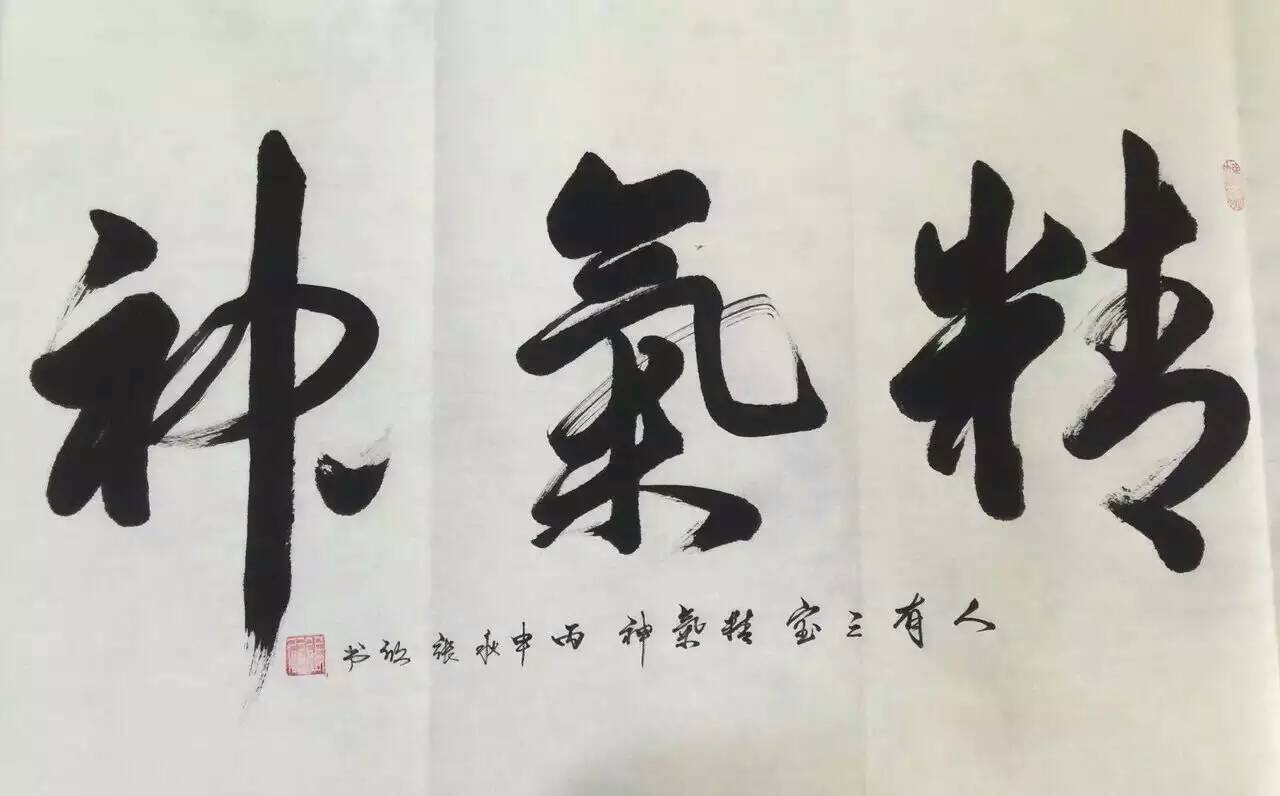 精氣神
人有三宝精氣神丙申秋張欣书